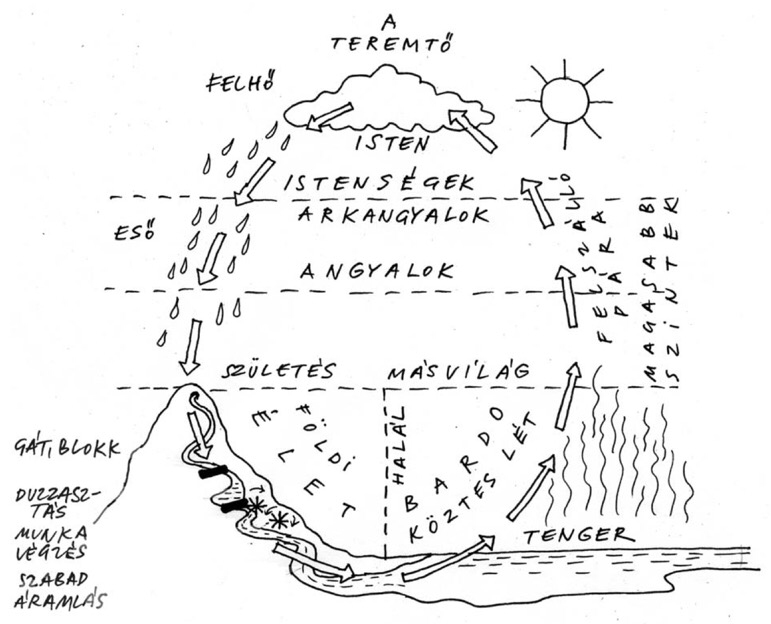 A
TEREMTŐ
FELHŐ
ISTEN
ISTENSÉGEK
ARKANGYALOK
ESŐ
ANGYALOK
FELSZÁLLÓ
PÁRA
MAGASABB
SZINTEK
SZÜLETÉS
MÁSVILÁG
FÖLDI
ÉLET
HALÁL
BARDO
KÖZTES LÉT
GÁT, BLOKK
DUZZASZ-
TÁS
MUNKA
VÉGZÉS
SZABAD
ÁRAMLÁS
TENGER